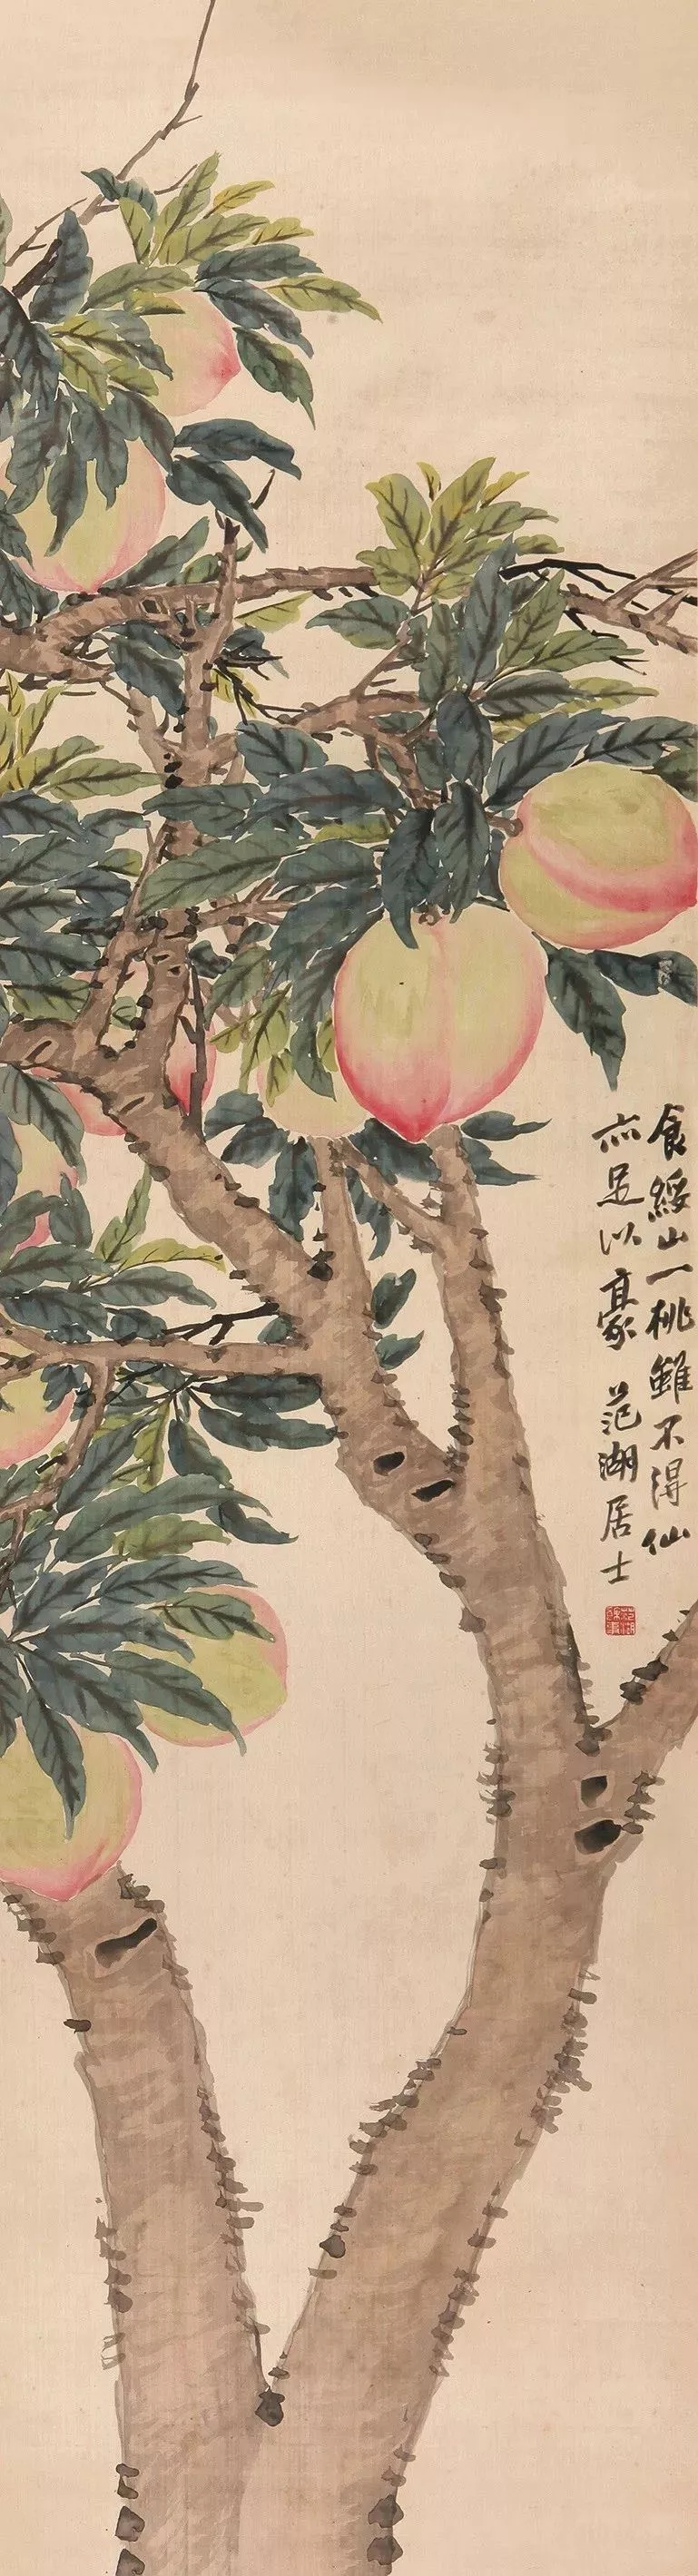 食綏山一桃雖不得仙
亦足以豪 范湖居士